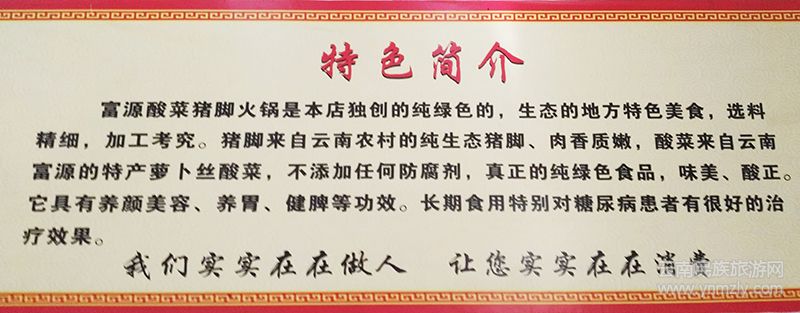 特色简介
富源酸菜猪脚火锅是本店独创的纯绿色的，生态的地方特色美食，选料
精细，加工考究。猪脚来自云南农村的纯生态猪脚、肉香质嫩，酸菜来自云南
富源的特产萝卜丝酸菜，不添加任何防腐剂，真正的纯绿色食品，味美、酸正。
它具有养颜美容、养胃、健脾等功效。长期食用特别对糖尿病患者有很好的治
疗效果。
我们实实在在做人 让您实实在在消费
云南民族旅游网
www.ynmzly.com